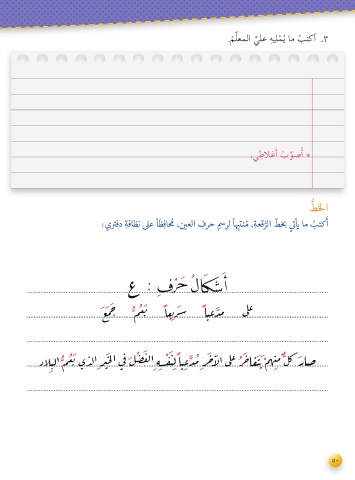 ٣. أكتبُ ما يُمْليهِ عليّ المعلّمُ.
* أُصوِّبُ أغلاطِي:
الخطُّ
أَكتبُ ما يأتي بخطِ الرُّقعةِ، مُنتبِهاً لرسمِ حرفِ العين، مُحافِظاً على نظافةِ دفتري:
أَشكَالُ حَرْفِ : ع
على مدَّعياً سَريعاً يَعُمُّ جَمَعَ
صارَ كلٌّ مِنهمْ يَتفاخَرُ على الآخَرِ مُدَّعِياً لِنَفْسِهِ الفَضْلَ في الخَيْرِ الذي يَعُمُّ البِلادَ
٥٠